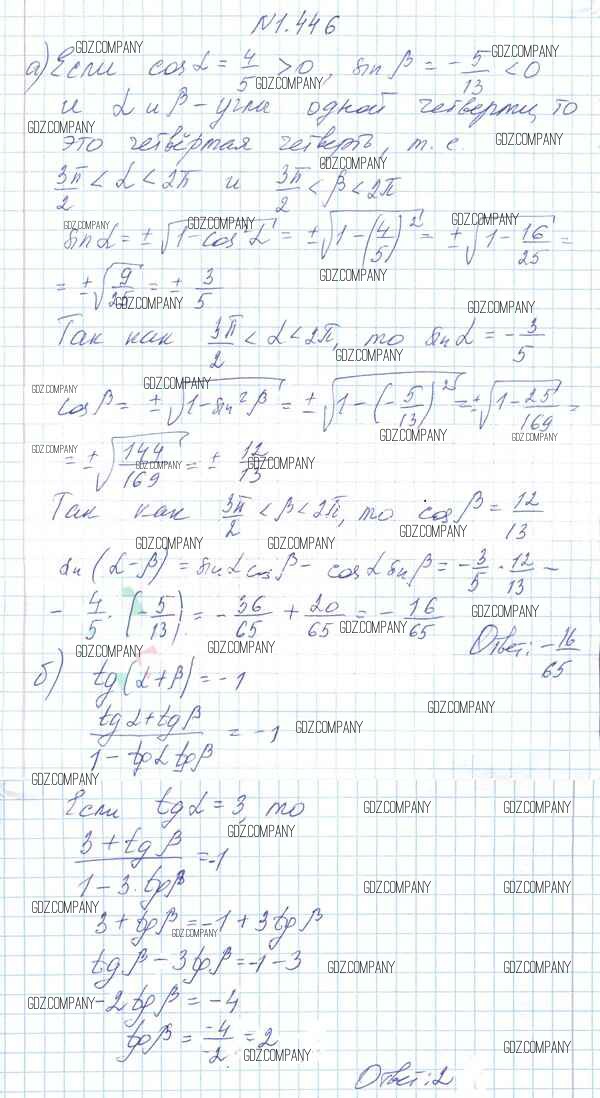 N1.446
а) Если cos α = 4/5 > 0, sin β = -5/13 < 0
и α и β - углы одной четверти, то
это четвёртая четверть, т. е.
3π/2 < α < 2π и 3π/2 < β < 2π
sin α = ±√(1-cos²α) = ±√(1-(4/5)²) = ±√(1-16/25) =
= ±√(9/25) = ± 3/5
Так как 3π/2 < α < 2π, то sin α = -3/5
cos β = ±√(1-sin²β) = ±√(1-(-5/13)²) = ±√(1-25/169) =
= ±√(144/169) = ± 12/13
Так как 3π/2 < β < 2π, то cos β = 12/13
sin(α-β) = sin α cos β - cos α sin β = -3/5 · 12/13 -
- 4/5 · (-5/13) = -36/65 + 20/65 = -16/65
Ответ: -16/65
б) tg(α+β) = -1
(tg α + tg β)/(1 - tg α tg β) = -1
Если tg α = 3, то
(3 + tg β)/(1 - 3·tg β) = -1
3 + tg β = -1 + 3 tg β
tg β - 3 tg β = -1 - 3
-2 tg β = -4
tg β = -4/-2 = 2
Ответ: 2
GDZ.COMPANY